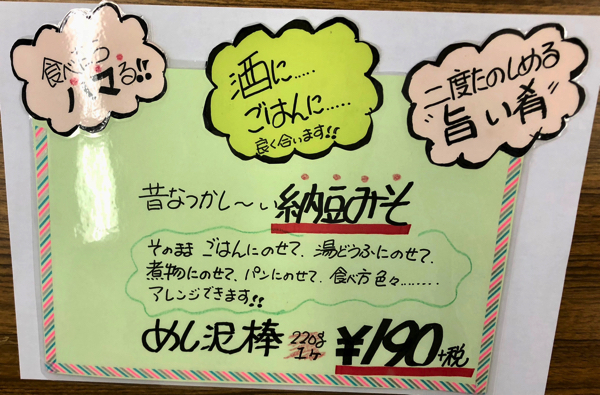 食べたら
ハマる!!
酒に……
ごはんに……
良く合います!!
二度たのしめる
"旨い肴"
昔なつかし～い 納豆みそ
そのまま ごはんにのせて、湯どうふにのせて、
煮物にのせて、パンにのせて、食べ方色々………
アレンジできます!!
めし泥棒 220g 1ヶ ¥190+税